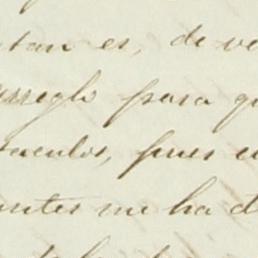 tan es, de ve
arreglo para q
taculos, pues e
antes me ha d